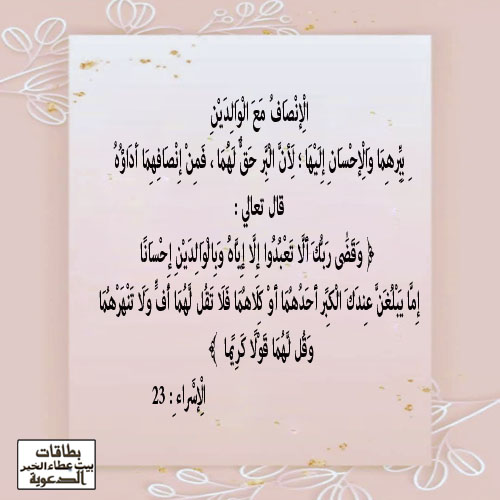 الْإِنْصَافُ مَعَ الْوَالِدَيْنِ
بِبِّرِهِمَا وَالْإِحْسَانِ إِلَيْهَا ؛ لِأَنَّ الْبِّر حَقٌّ لَهُمَا ، فَمِنْ إِنْصَافِهِمَا أَدَاؤُهُ
قال تعالي :
﴿ وَقَضَى رَبُّكَ أَلَّا تَعْبُدُوا إِلَّا إِيَّاهُ وَبِالْوَالِدَيْنِ إِحْسَانًا
إِمَّا يَبْلُغَنَّ عِندَكَ الْكِبَرَ أَحَدُهُمَا أَوْ كِلَاهُمَا فَلَا تَقُل لَّهُمَا أُفٍّ وَلَا تَنْهَرْهُمَا
وَقُل لَّهُمَا قَوْلًا كَرِيمًا ﴾
الْإِسْراءِ : 23
بطاقات
بيت عطاء الخير
الدعوية